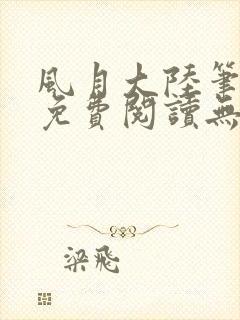 風月大陸筆
免費閱讀無
梁飛